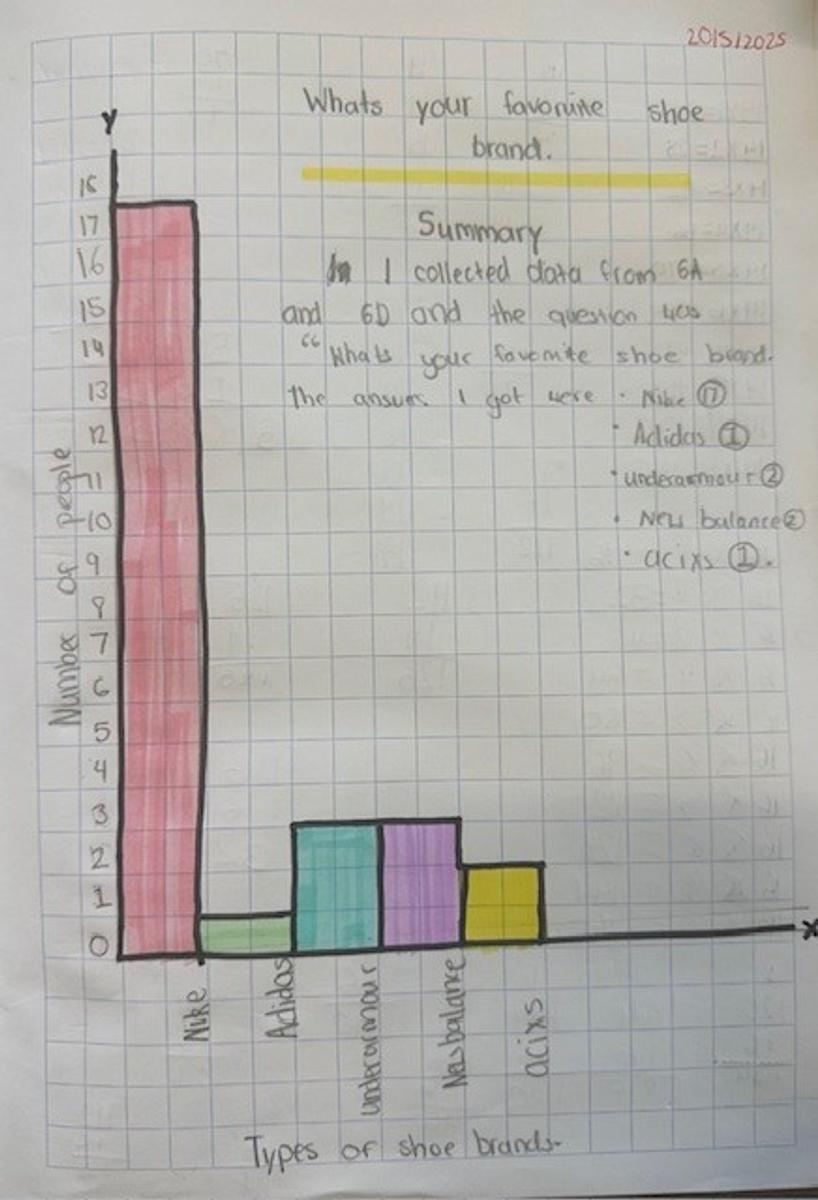 20/5/2025
Whats your favorite shoe
brand.
Summary
I collected data from 6A
and 6D and the question was
“Whats your favorite shoe brand.
the answer I got were · Nike 17
· Adidas 1
· underarmour 2
· New balance 2
· acixs 1.
Y
18
17
16
15
14
13
12
11
10
9
8
7
6
5
4
3
2
1
0
Number of people
X
Nike
Adidas
underarmour
New balance
acixs
Types of shoe brands.